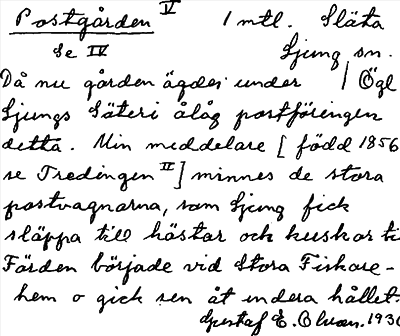 Postgården V 1 mtl. Släta
Se IV Ljung sn.
Då nu gården ägdes under / Ögl
Ljungs Säteri ålåg postföringen
detta. Min meddelare [ född 1856
se Tredingen II ] minnes de stora
postvagnarna, som Ljung fick
släppa till hästar och kuskar ti
Färden började vid Stora Fiskare-
hem o gick sen åt andera hållet.
Gustaf E. Olsson. 1930